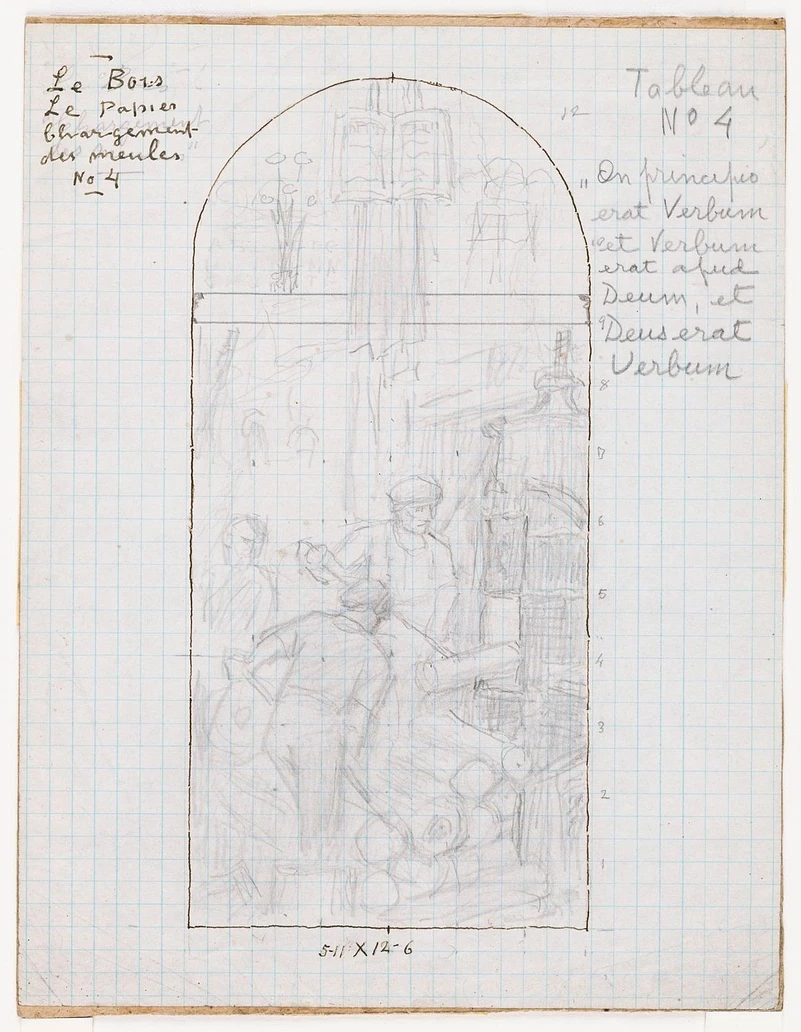 Le Bois
Le Papier
Chargement
des meules
No 4
Tableau
No 4
"On principio
erat Verbum
et Verbum
erat apud
Deum, et
Deus erat
Verbum
12
9
8
7
6
5
4
3
2
1
5-11 X 12-6